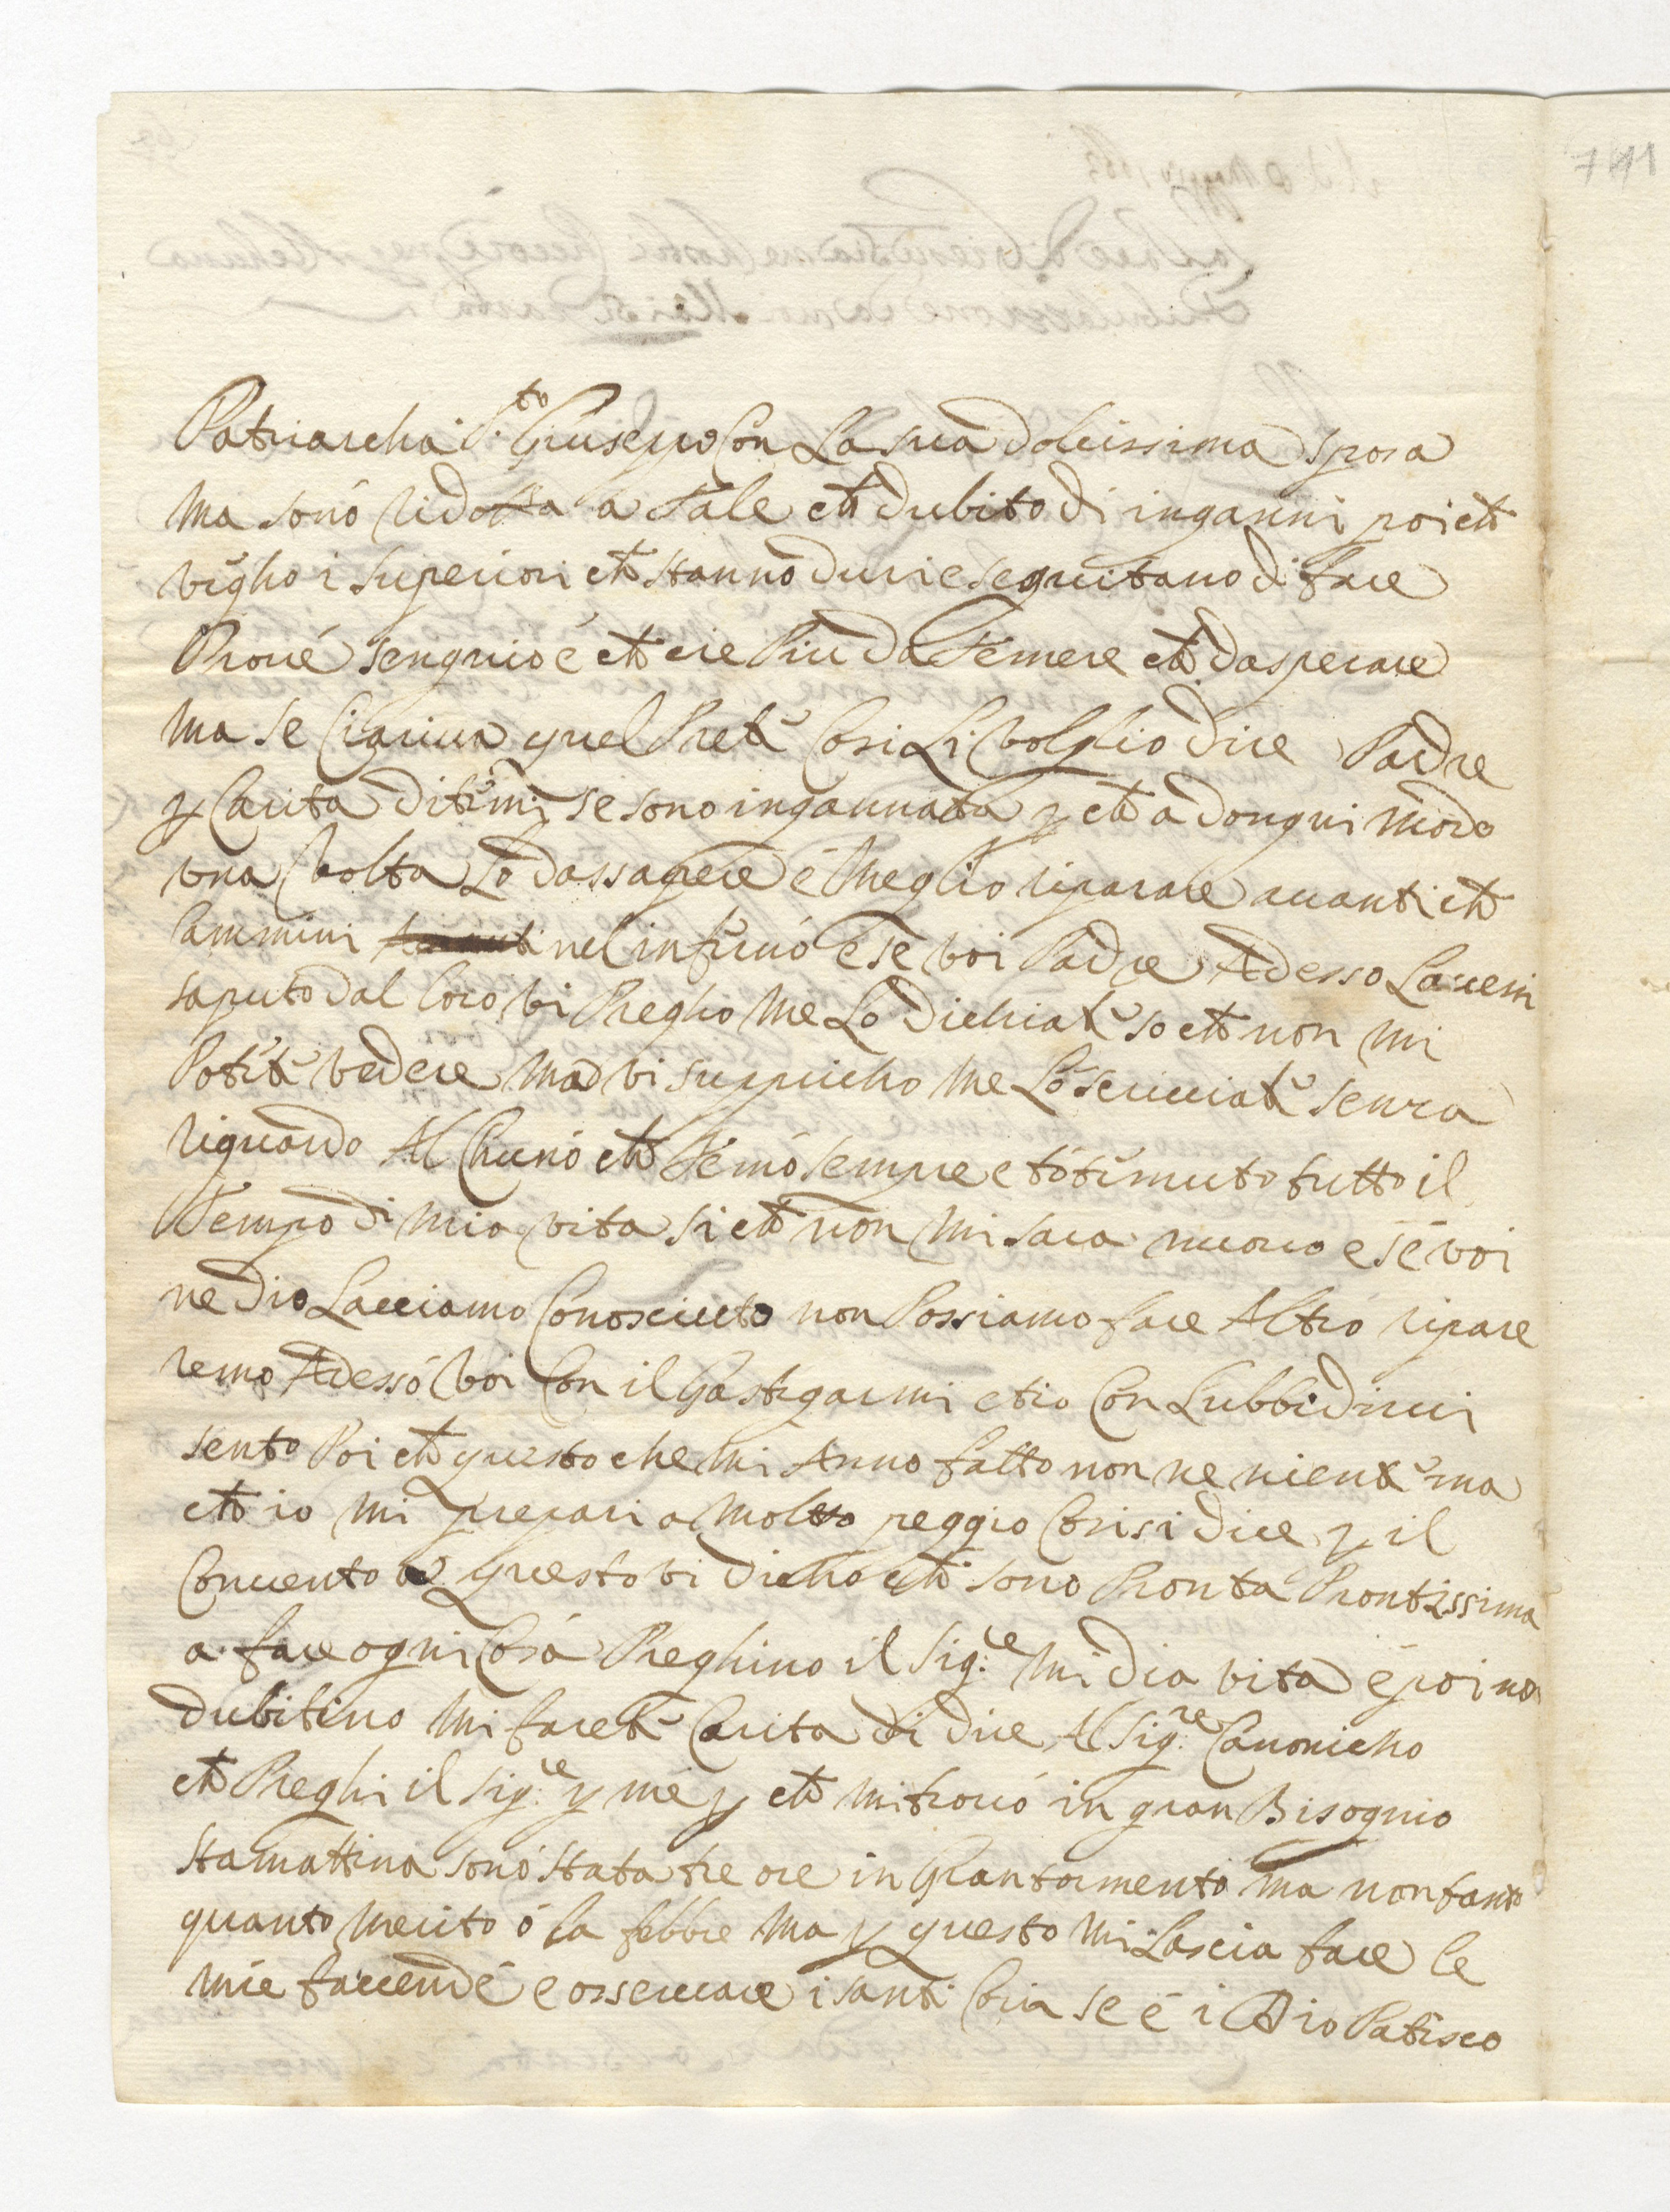 Patriarcha S.to Giuseppo Con La sua dolcissima sposa
ma sonó ridotta a tale ch dubito di inganni poi ch
viglio i superiori ch stanno duri e seguitano di fare
Prove sengnio é ch cie Piu da temere ch da sperare
ma se Ci ariva quel Prete Cosi Li volglio dire Padre
p Carita ditemi se sono ingannata p ch a dongni modo
una volta Lo da ssapere é meglio riparare avanti ch
Cammini nel infernó e se voi Padre Adesso Lavem
saputo dal loro vi Pregho me Lo dichiate so ch non mi
Potete vedere ma vi suppricho me Lo scriviate senza
riguardo Al Chunó ch temó sempre e tó temuto tutto il
tempo di mia vita si ch non mi sara nuovo e se voi
ne dio Lavciamo Conosciuto non Possiamo fare Altró ripare
remo Adessó voi Con il Gastigarmi et io Con Lubbidirvi
sento Poi ch questo che mi Anno fatto non ne niente ma
ch io mi prepari a molto peggio Cosi si dice p il
Convento e questo vi dicho ch sono Pronta Prontissima
a fare ogni Cosa Preghino il Sig.re mi dia vita é poi no
dubitino mi farete Carita di dire Al Sig.re Canonicho
ch Preghi il sig.re p me p ch mi trovó in gran Bisognio
stamattina sonó stata tre ore in Gran tormento ma non tanto
quanto merito ó la febbre ma p questo mi Lascia fare le
mie faccende e osservare i santi se é i Dio Patisco
711